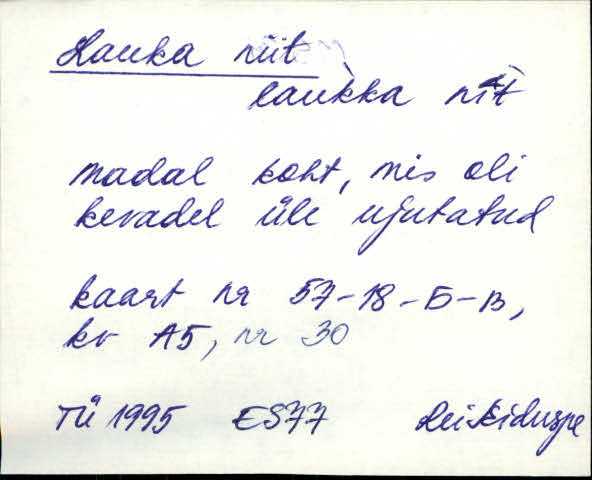 Lauka niit
laukka nit
madal koht, mis oli
kevadel üle ujutatud
kaart nr 57-18-Б-В,
kv A5, nr 30
TÜ 1995 ES77